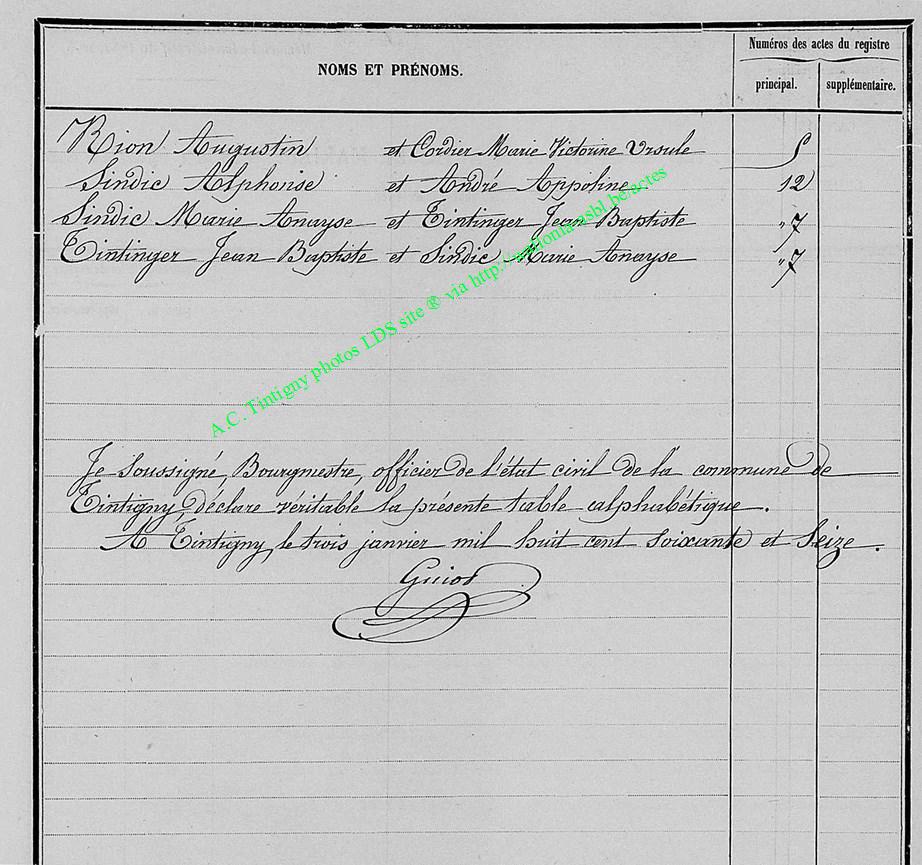 NOMS ET PRÉNOMS.
Numéros des actes du registre
principal.
supplémentaire.
Rion Augustin et Cordier Marie Victorine Ursule
Sindic Alphonse et André Appoline 12
Sindic Marie Anayse et Tintinger Jean Baptiste " 7
Tintinger Jean Baptiste et Sindic Marie Anayse " 7
A.C. Tintigny photos LDS site ® via
Je soussigné, Bourgmestre, officier de l'état civil de la commune de
Tintigny, déclare véritable la présente table alphabétique.
A Tintigny, le trois janvier mil huit cent soixante et seize.
Guiot